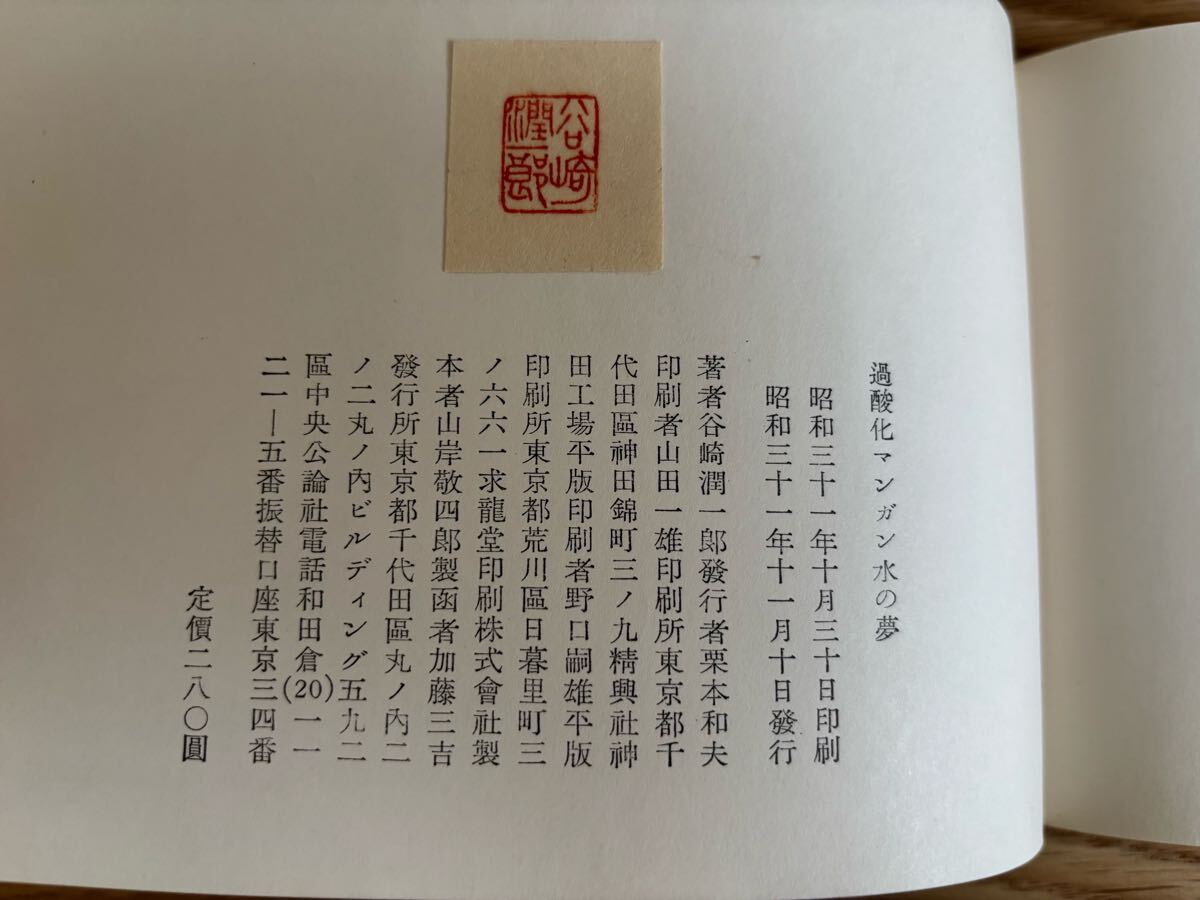 谷崎
潤一郎
過酸化マンガン水の夢
昭和三十一年十月三十日印刷
昭和三十一年十一月十日發行
著者谷崎潤一郎發行者栗本和夫
印刷者山田一雄印刷所東京都千
代田區神田錦町三ノ九精興社神
田工場平版印刷者野口嗣雄平版
印刷所東京都荒川區日暮里町三
ノ六六一求龍堂印刷株式會社製
本者山岸敬四郎製函者加藤三吉
發行所東京都千代田區丸ノ內二
ノ二丸ノ內ビルディング五九二
區中央公論社電話和田倉(20)一一
二一―五番振替口座東京三四番
定價二八〇圓